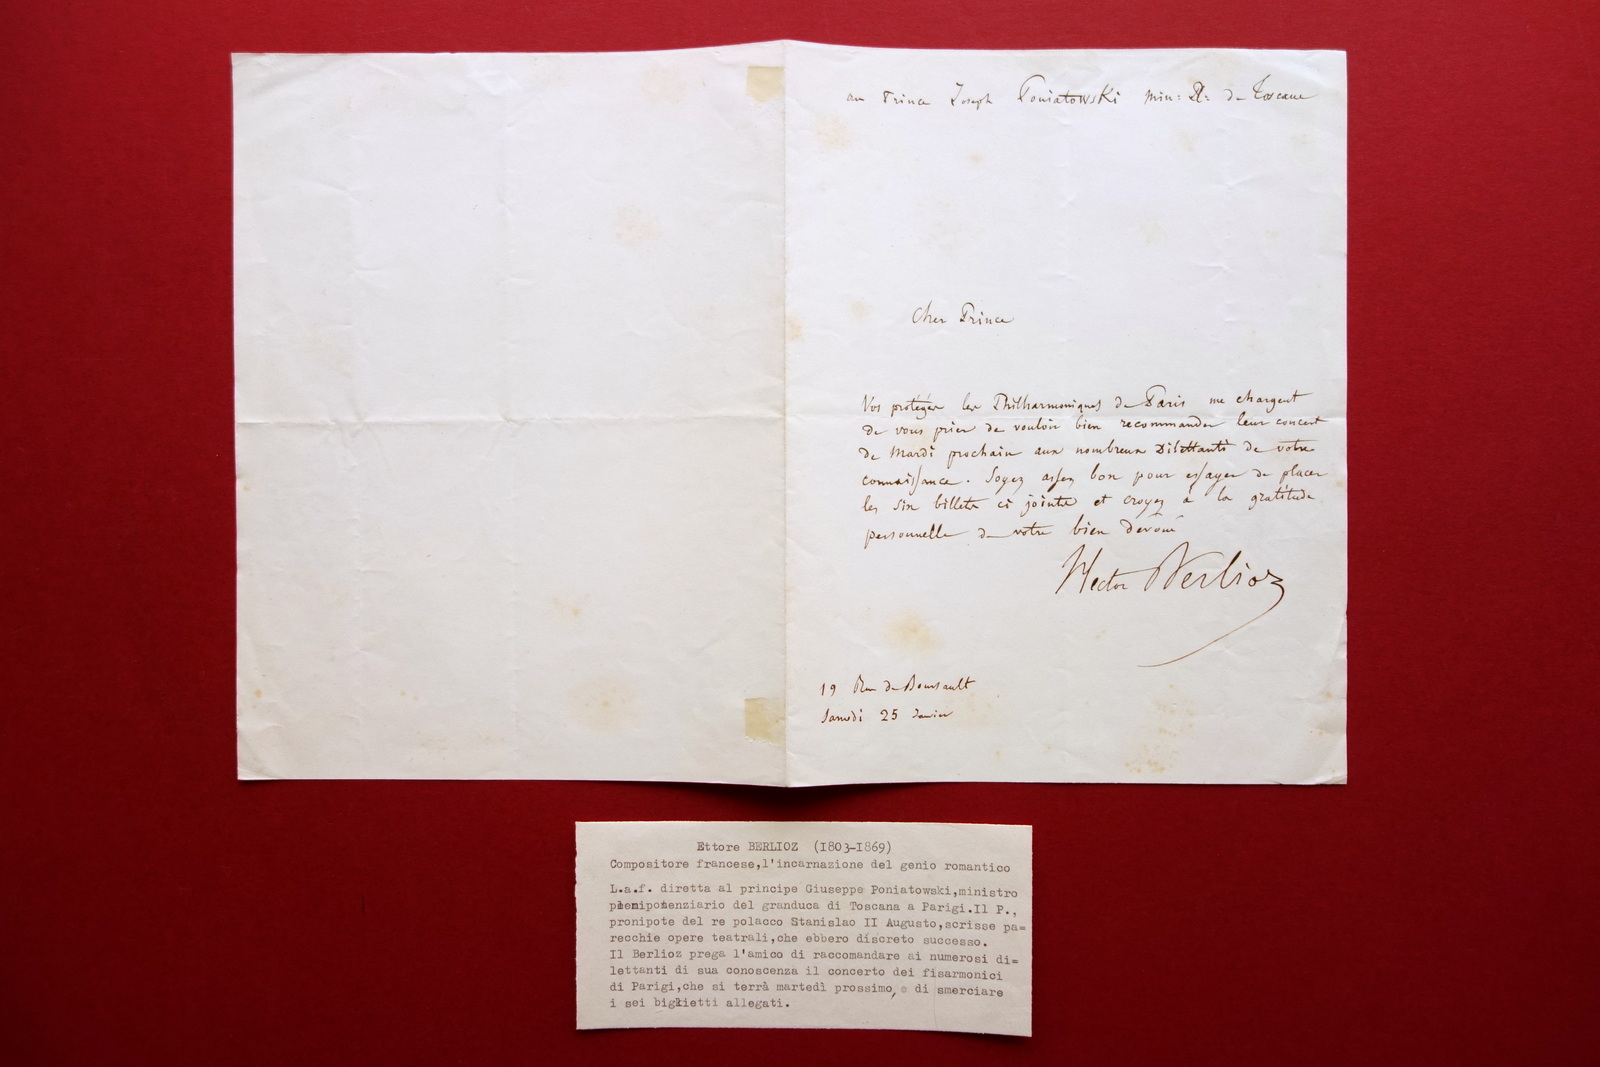 au Prince Joseph Poniatowski Min: Pl: de Toscane
Cher Prince
Vos protégés les Philharmoniques de Paris me chargent
de vous prier de vouloir bien recommander leur concert
de Mardi prochain aux nombreux Dilettanti de votre
connaissance. Soyez assez bon pour essayer de placer
les six billets ci joints et croyez à la gratitude
personnelle de votre bien dévoué
Hector Berlioz
19 Rue de Boursault
Samedi 25 Janvier
Ettore BERLIOZ (1803-1869)
Compositore francese,l'incarnazione del genio romantico
L.a.f. diretta al principe Giuseppe Poniatowski,ministro
plenipotenziario del granduca di Toscana a Parigi.Il P.,
pronipote del re polacco Stanislao II Augusto,scrisse pa=
recchie opere teatrali,che ebbero discreto successo.
Il Berlioz prega l'amico di raccomandare ai numerosi di=
lettanti di sua conoscenza il concerto dei fisarmonici
di Parigi,che si terrà martedì prossimo, e di smerciare
i sei biglietti allegati.